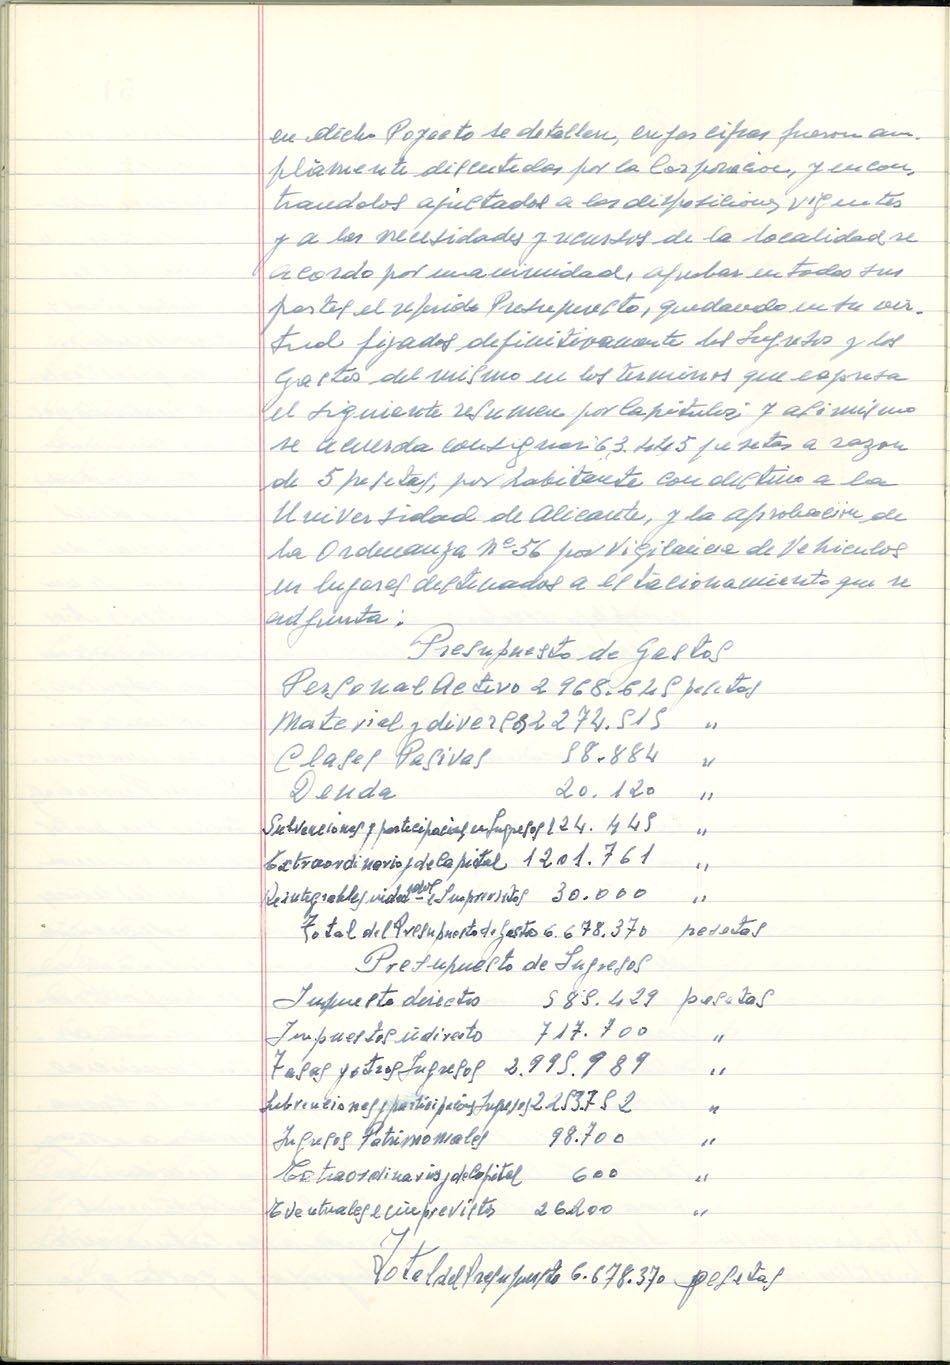 en dicho Poyecto se detallan, cuyas cifras fueron am-
pliamente discutidas por la Corporacion, y encon-
trandolos ajustados a las disposiciones vigentes
y a las necesidades y recursos de la localidad se
acordo por unanimidad, aprobar en todas sus
partes el referido Presupuesto, quedando en su vir-
tud fijados definitivamente los Ingresos y los
Gastos del mismo en los terminos que expresa
el siguiente resumen por Capitulos; y asimismo
se acuerda consignar 63.445 pesetas a razon
de 5 pesetas, por habitante con destino a la
Universidad de Alicante, y la aprobacion de
la Ordenanza nº 56 por Vigilancia de Vehiculos
en lugares destinados a estacionamiento que se
adjunta:
Presupuesto de Gastos
Personal Activo 2 968.645 pesetas
Material y diversos 2 274.515 "
Clases Pasivas 58.884 "
Deuda 20.120 "
Subvenciones y participacion en Ingresos 124.445 "
Extraordinarios y de Capital 1201.761 "
Reintegrables e Imprevistos 30.000 "
Total del Presupuesto de Gasto 6.678.370 pesetas
Presupuesto de Ingresos
Impuesto directo 585.429 pesetas
Impuestos indirecto 717.700 "
Tasas y otros Ingresos 2.995.989 "
Subvenciones y participacion Ingresos 2253752 "
Ingresos Patrimoniales 98.700 "
Extraordinarios y de Capital 600 "
Eventuales e imprevistos 26200 "
Total del Presupuesto 6.678.370 pesetas